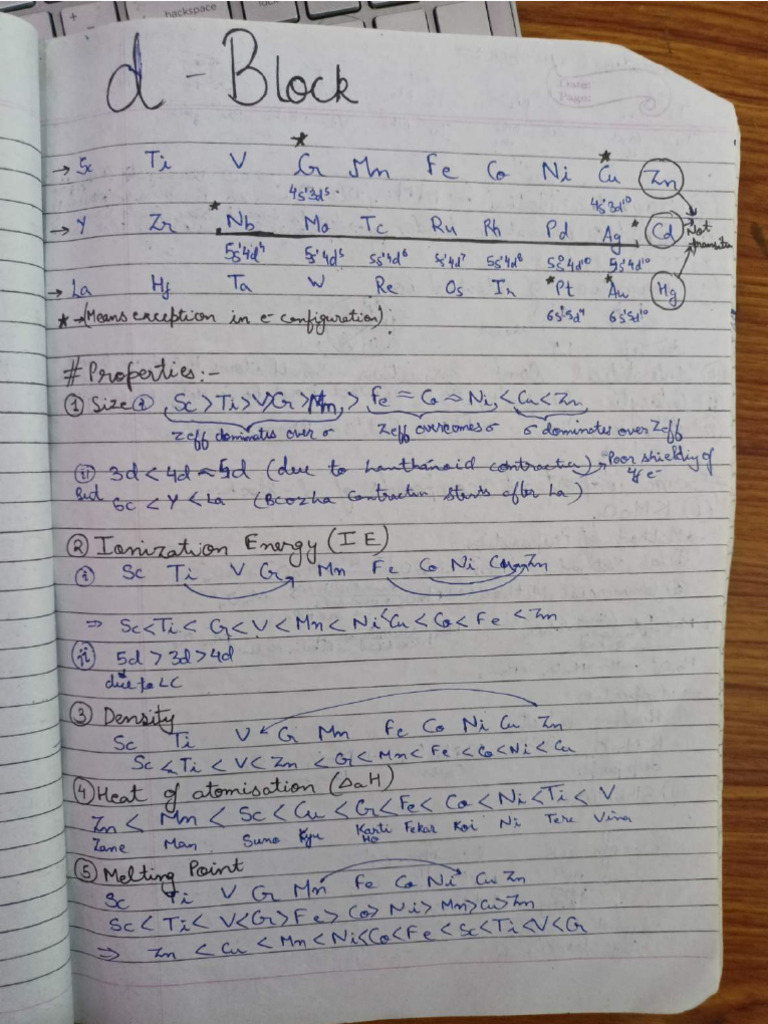 backspace
d - Block
→ Sc Ti V Cr Mn Fe Co Ni Cu Zn
4s¹3d⁵ 4s¹3d¹⁰
→ Y Zr Nb Mo Tc Ru Rh Pd Ag Cd Not
5s¹4d⁴ 5s¹4d⁵ 5s¹4d⁶ 5s¹4d⁷ 5s¹4d⁸ 5s⁰4d¹⁰ 5s¹4d¹⁰
→ La Hf Ta W Re Os Ir Pt Au Hg
★→(Means exception in e⁻ configuration) 6s¹5d⁹ 6s¹5d¹⁰
# Properties:-
① Size ⓘ Sc > Ti > V > Cr > Mn > Fe = Co ≈ Ni < Cu < Zn
Zeff dominates over σ Zeff overcomes σ σ dominates over Zeff
ⓘⓘ 3d < 4d ≈ 5d (due to Lanthanoid contraction) → Poor shielding of
4f e⁻
But Sc < Y < La (Bcoz Contraction starts after La)
② Ionization Energy (IE)
ⓘ Sc Ti V Cr Mn Fe Co Ni Zn
⇒ Sc < Ti < Cr < V < Mn < Ni < Cu < Co < Fe < Zn
ⓘⓘ 5d > 3d > 4d
due to LC
③ Density
Sc Ti V Cr Mn Fe Co Ni Cu Zn
Sc < Ti < V < Zn < Cr < Mn < Fe < Co < Ni < Cu
④ Heat of atomisation (ΔaH)
Zn < Mn < Sc < Cu < Cr < Fe < Co < Ni < Ti < V
Zane Man Suno Kyu Karti Ho Fekar Koi Ni Tere Vina
⑤ Melting Point
Sc Ti V Cr Mn Fe Co Ni Cu Zn
Sc < Ti < V < Cr > Fe > Co > Ni > Mn > Cu > Zn
⇒ Zn < Cu < Mn < Ni < Co < Fe < Sc < Ti < V < Cr